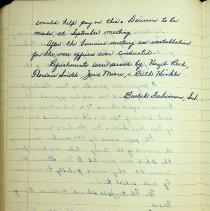 would help pay on this. Decision to be
made at September meeting.
After the business meeting an installation
for the new officers was conducted.
Refreshments were served by Hazel
Florene Smith, Jane Moore, + Ruth
Beulah Sec.